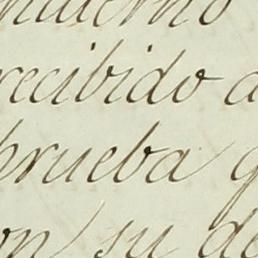 recibido a
prueba q
on su de